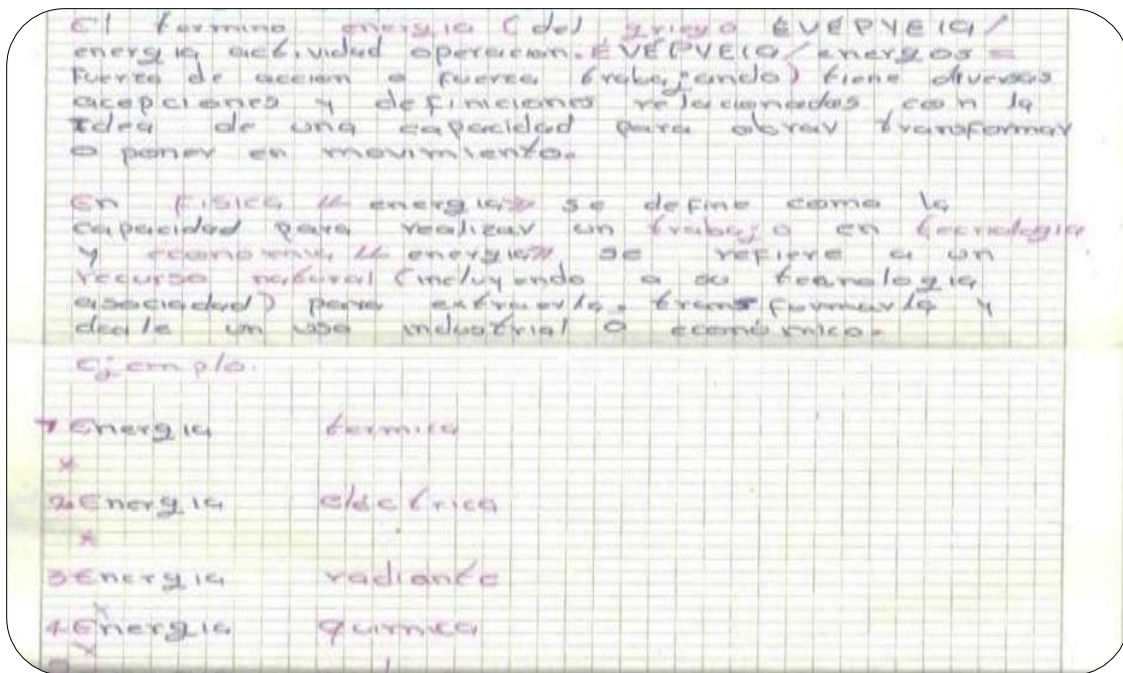 El termino energia (del griego ÉVÉPYEIA/
energia actividad operacion. ÉVÉPVEIA/energos =
Fuerza de accion o fuerza trabajando) tiene diversas
acepciones y definiciones relacionadas con la
Idea de una capacidad para obrar transformar
o poner en movimiento.
En FISICA "energia" se define como la
capacidad para realizar un trabajo en tecnologia
y economia "energia" se refiere a un
recurso natural (incluyendo a su tecnologia
asociadad) para extraerla, transformarla y
deale un uso industrial o económico.
Ejemplo.
1 Energia termica
2 Energia eléctrica
3 Energia radiante
4 Energia quimica